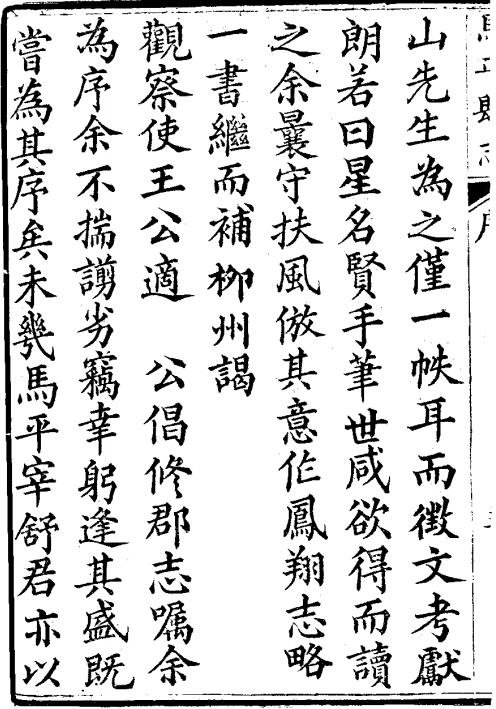 山先生為之僅一帙耳而徵文考獻
朗若日星名賢手筆世咸欲得而讀
之余曩守扶風倣其意作鳳翔志略
一書繼而補柳州謁
觀察使王公適　公倡修郡志囑余
為序余不揣謭劣竊幸躬逢其盛既
嘗為其序矣未幾馬平宰舒君亦以